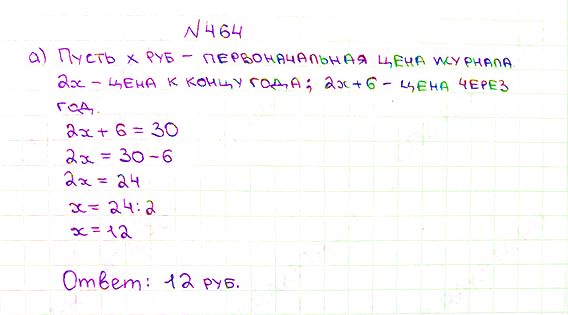 №464
а) Пусть х руб – первоначальная цена журнала
2х – цена к концу года; 2х+6 – цена через
год.
2х + 6 = 30
2х = 30 – 6
2х = 24
х = 24 : 2
х = 12
Ответ: 12 руб.